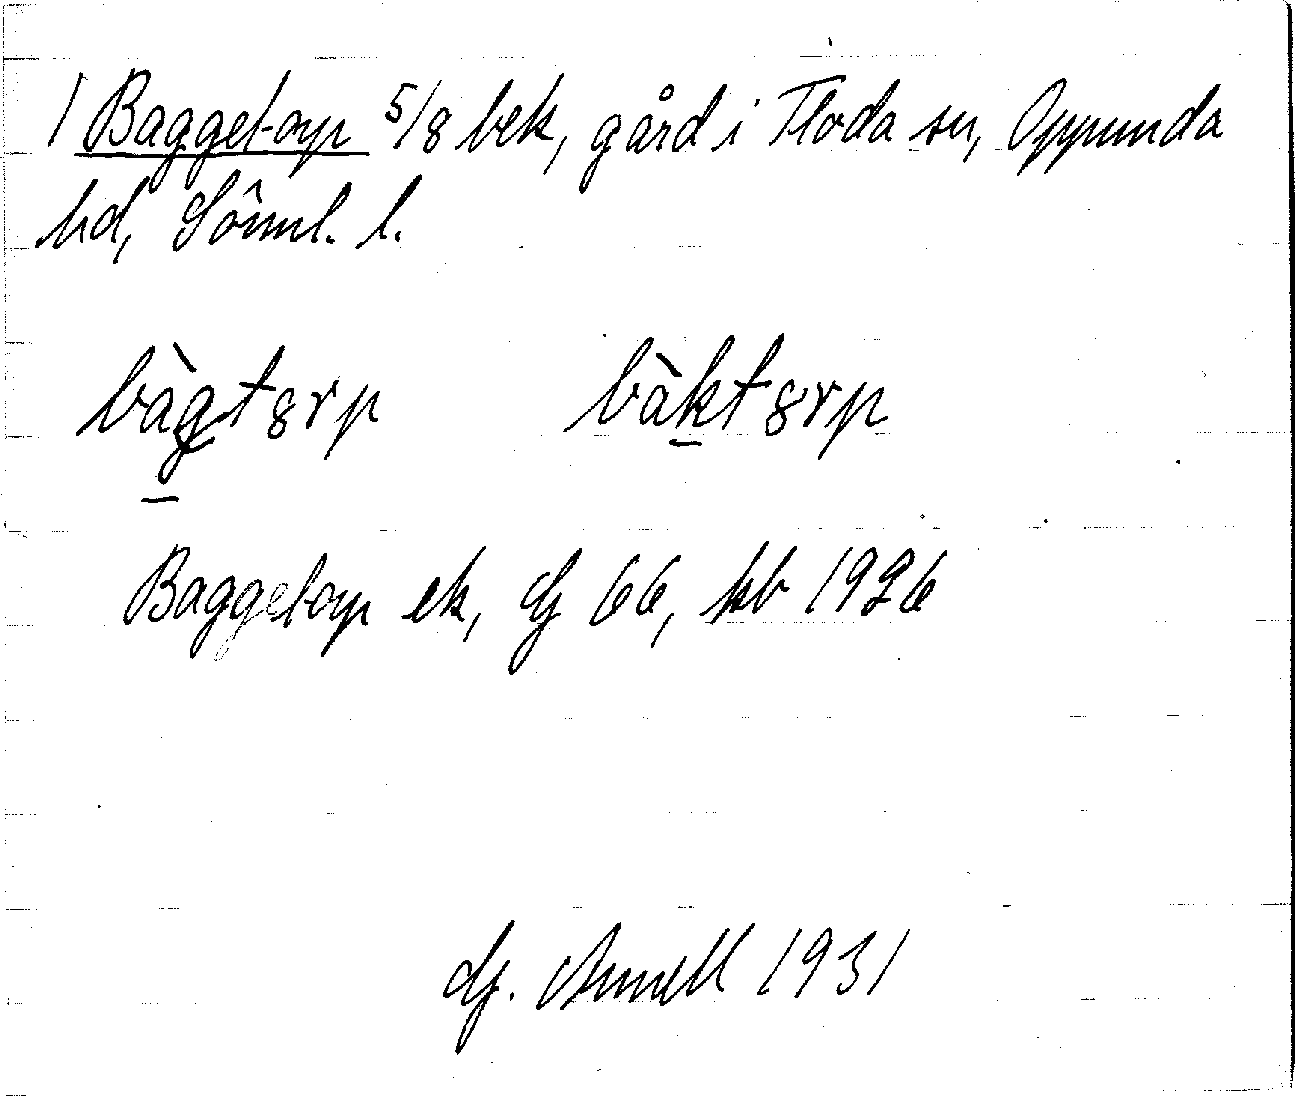 1 Baggetorp 5/8 bek, gård i Floda sn, Oppunda
hd, Sörml. l.
bàgtȣrp bàktȣrp
Baggetorp ek, Gj 66, kb 1926
Gj. Annell 1931